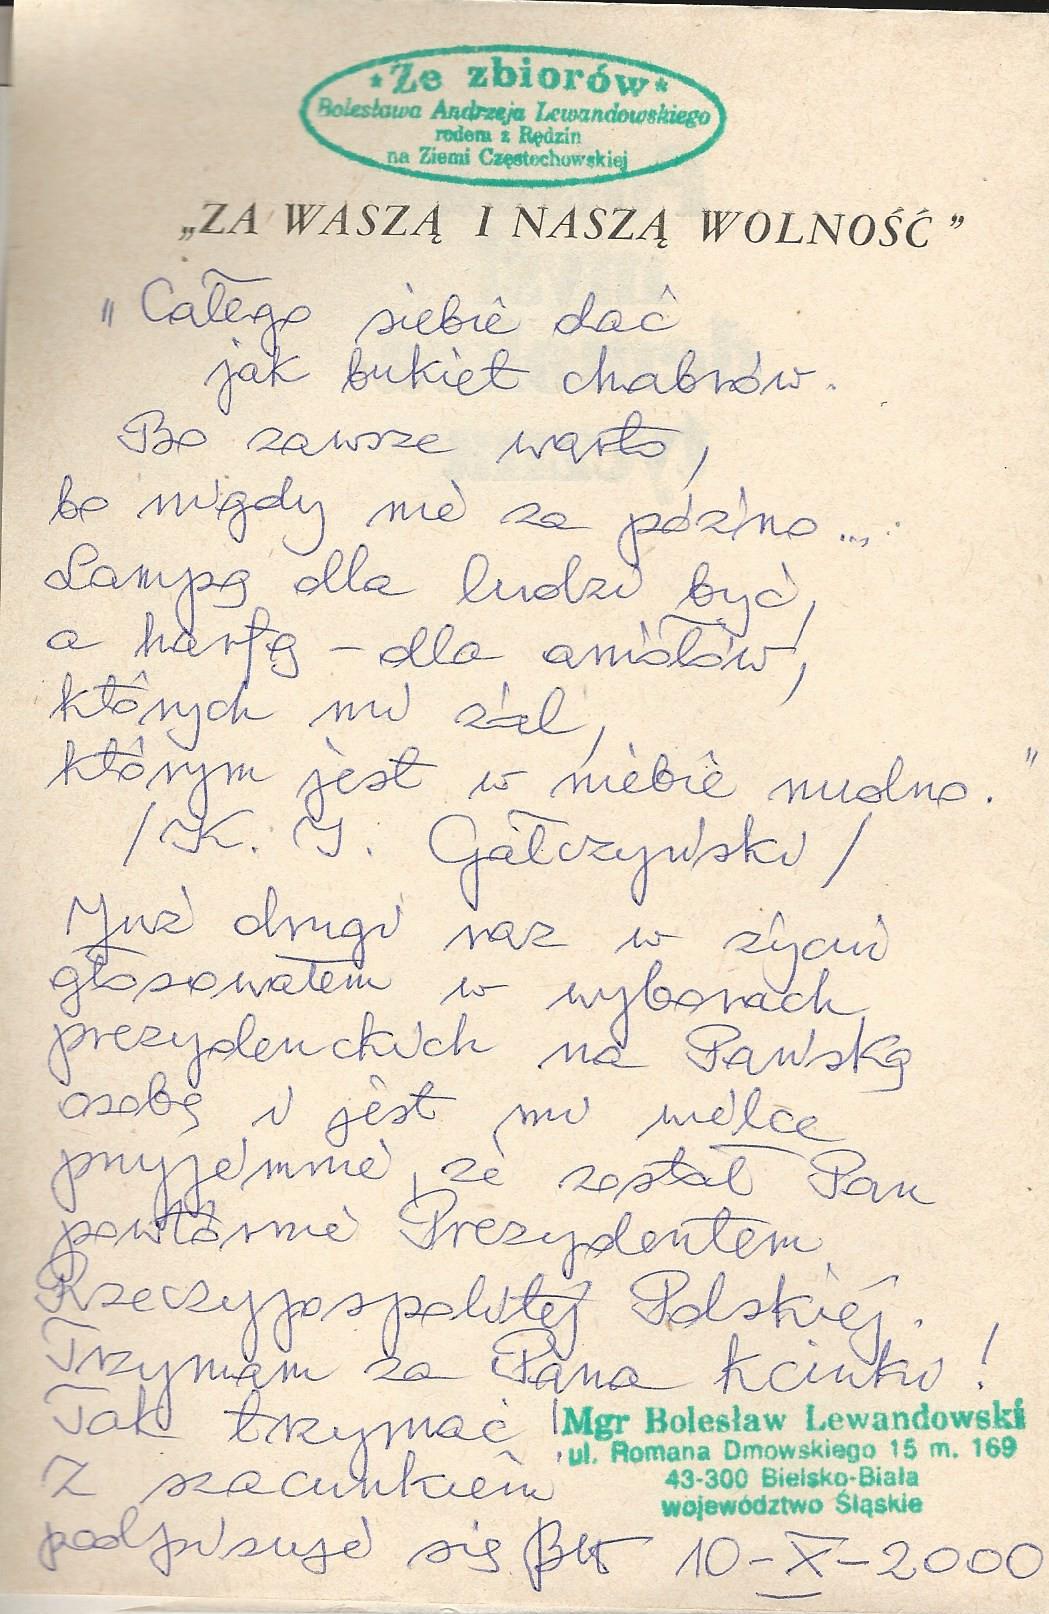 *Ze zbiorów*
Bolesława Andrzeja Lewandowskiego
rodem z Rędzin
na Ziemi Częstochowskiej
„ZA WASZĄ I NASZĄ WOLNOŚĆ”
"Całego siebie dać
jak bukiet chabrów.
Bo zawsze warto,
bo nigdy nie za późno...
Lampą dla ludzi być,
a harfą - dla aniołów,
których mi żal,
którym jest w niebie nudno."
/K. I. Gałczyński/
Już drugi raz w życiu
głosowałem w wyborach
prezydenckich na Pańską
osobę i jest mi wielce
przyjemnie, że został Pan
powtórnie Prezydentem
Rzeczypospolitej Polskiej.
Trzymam za Pana kciuki!
Tak trzymać!
Mgr Bolesław Lewandowski
ul. Romana Dmowskiego 15 m. 169
43-300 Bielsko-Biała
województwo Śląskie
Z szacunkiem
podpisuje się 10-X-2000